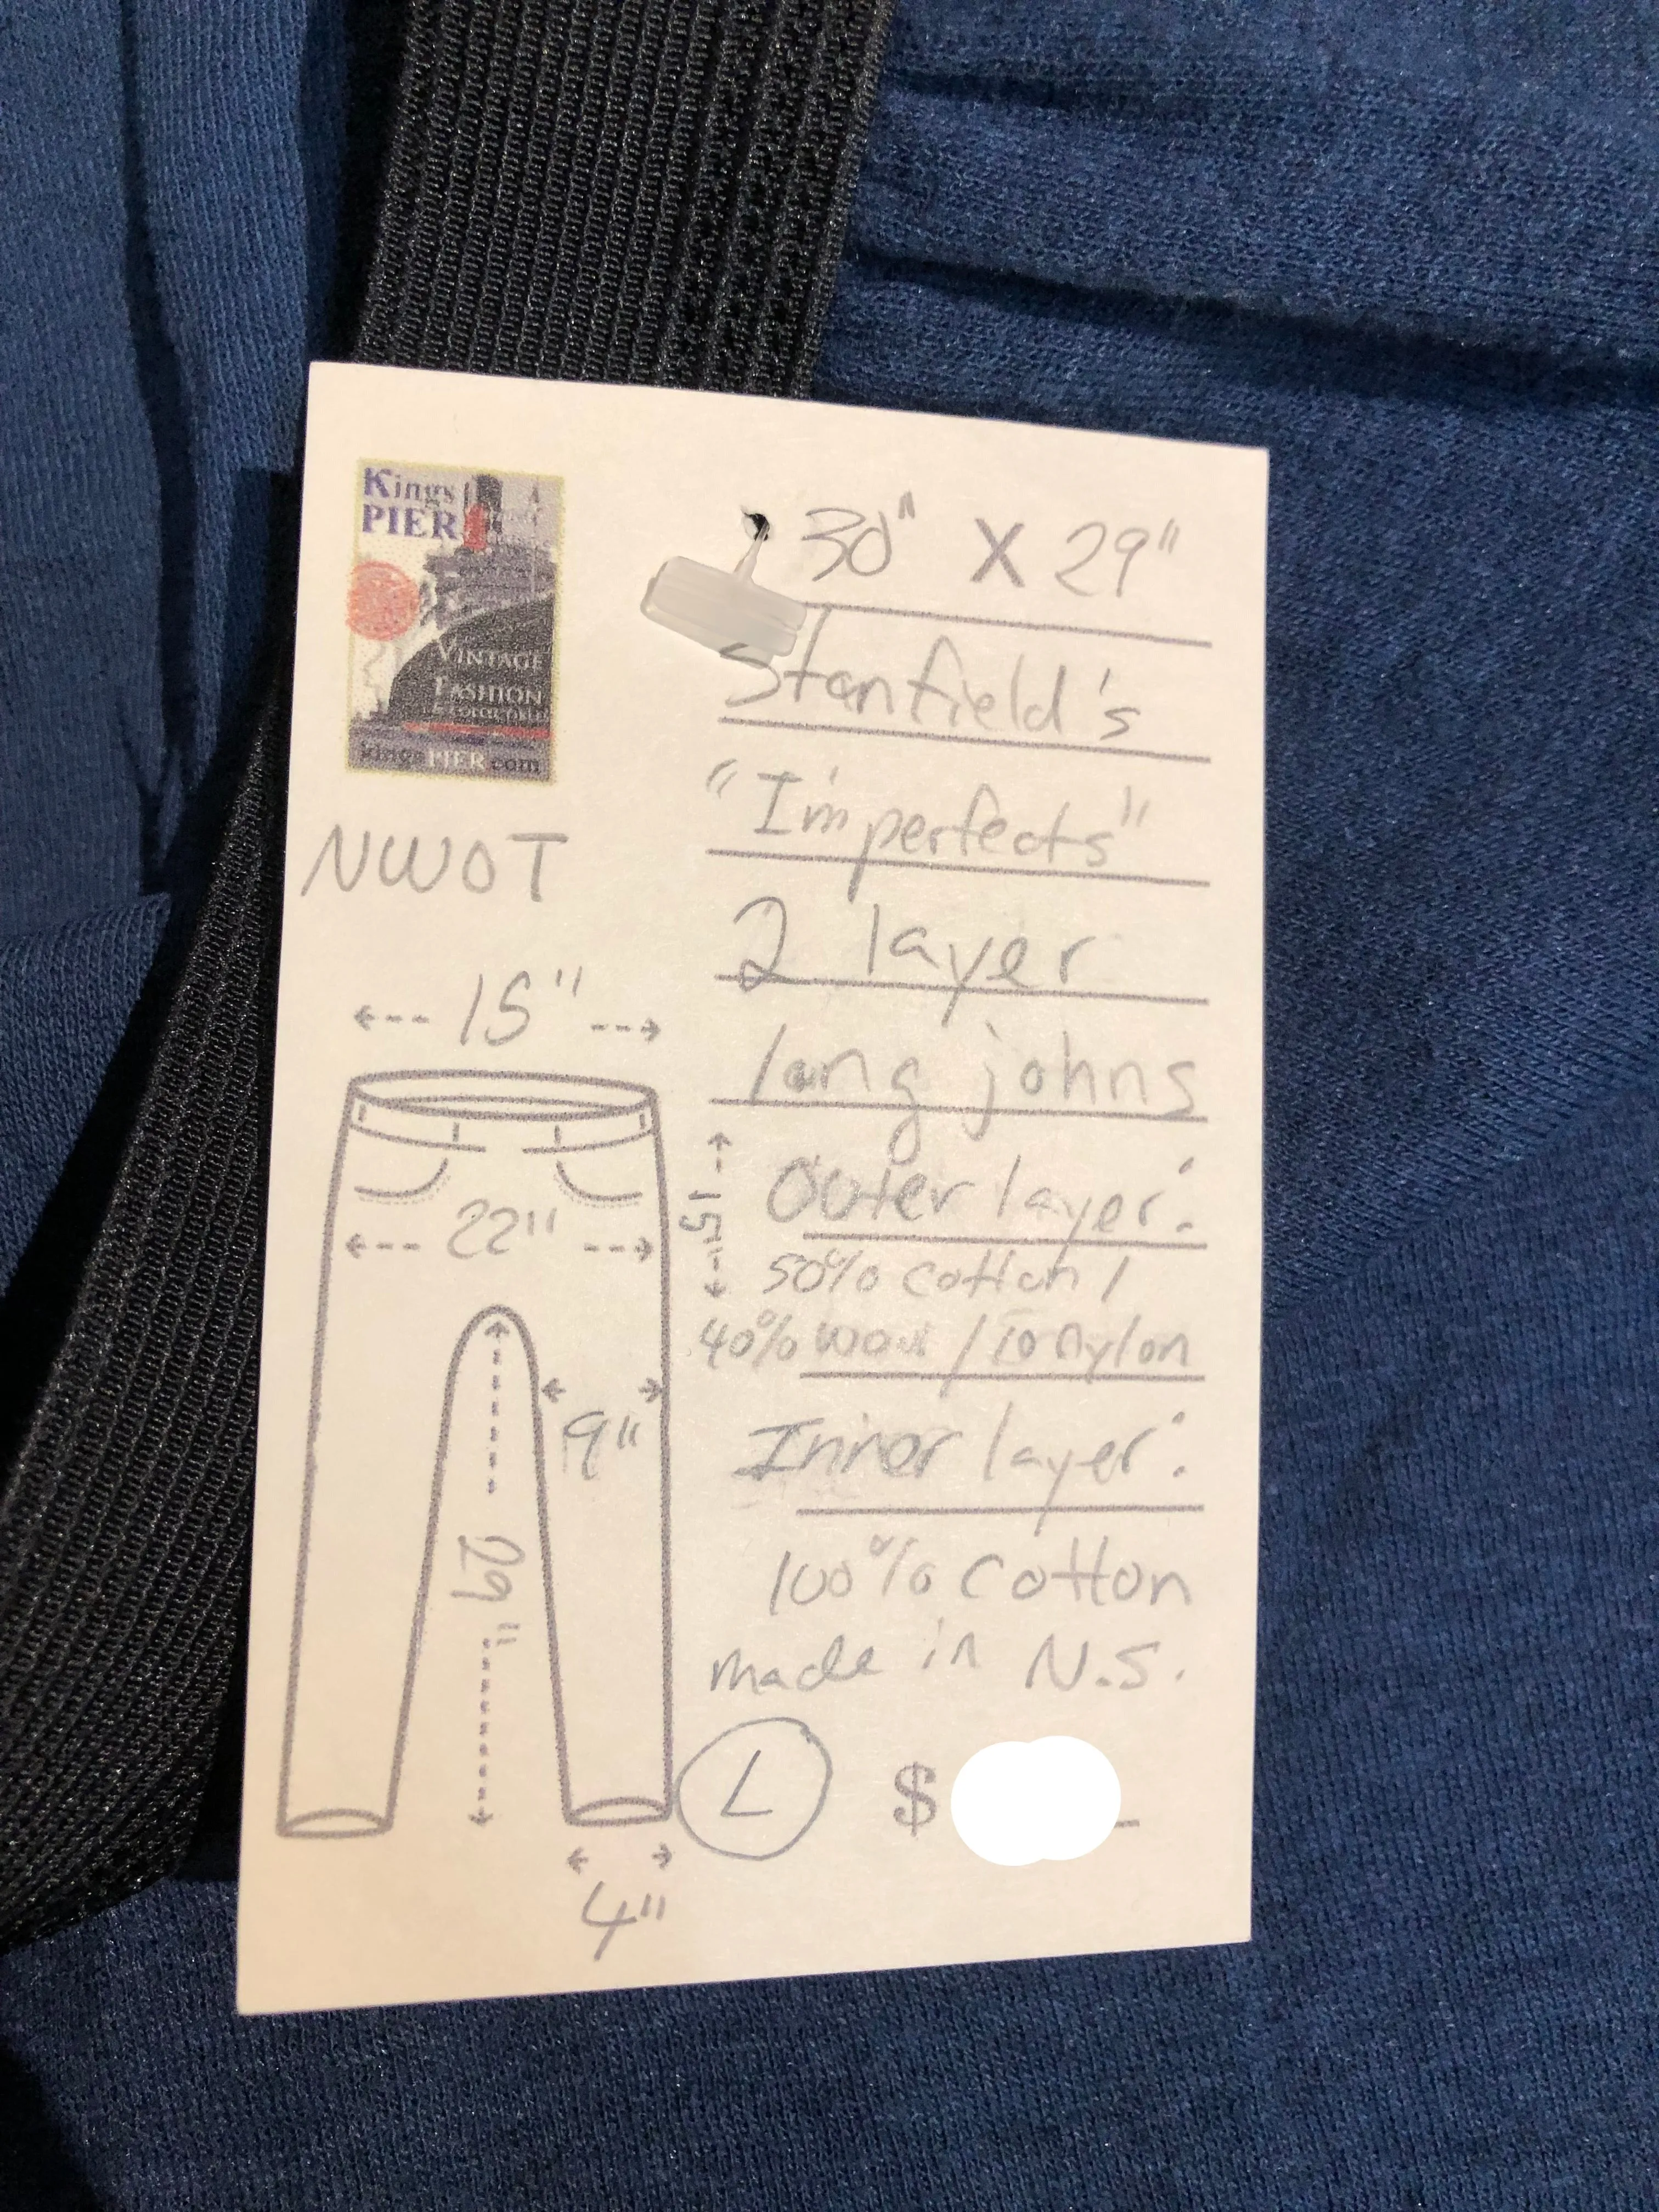 Kings
PIER
VINTAGE
FASHION
kingsPIER.com
30" X 29"
Stanfield's
"Imperfects"
2 layer
long johns
Outer layer:
50% cotton /
40% wool / 10 nylon
Inner layer:
100% cotton
made in N.S.
L $
NWOT
15"
22"
15"
9"
29"
4"